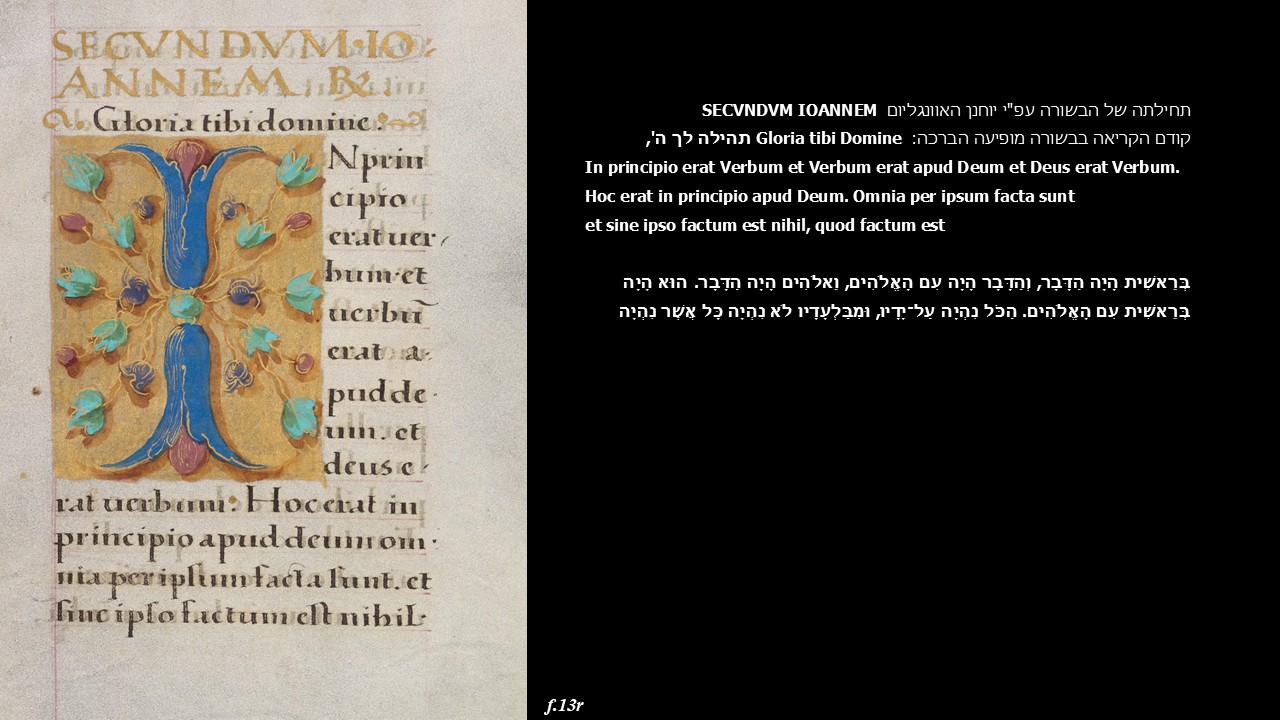 SECVNDVM·IO
ANNEM. R.
Gloria tibi domine.
N prin
cipio
erat uer
bum·et
uerbū
erat a
pud de
um. et
deus e
rat uerbum: Hoc erat in
principio apud deum om
nia per ipsum facta sunt. et
sine ipso factum est nihil
תחילתה של הבשורה עפ"י יוחנן האוונגליום SECVNDVM IOANNEM
קודם הקריאה בבשורה מופיעה הברכה: Gloria tibi Domine תהילה לך ה',
In principio erat Verbum et Verbum erat apud Deum et Deus erat Verbum.
Hoc erat in principio apud Deum. Omnia per ipsum facta sunt
et sine ipso factum est nihil, quod factum est
בְּרֵאשִׁית הָיָה הַדָּבָר, וְהַדָּבָר הָיָה עִם הָאֱלֹהִים, וֵאלֹהִים הָיָה הַדָּבָר. הוּא הָיָה
בְּרֵאשִׁית עִם הָאֱלֹהִים. הַכֹּל נִהְיָה עַל־יָדָיו, וּמִבִּלְעָדָיו לֹא נִהְיָה כָּל אֲשֶׁר נִהְיָה
f.13r